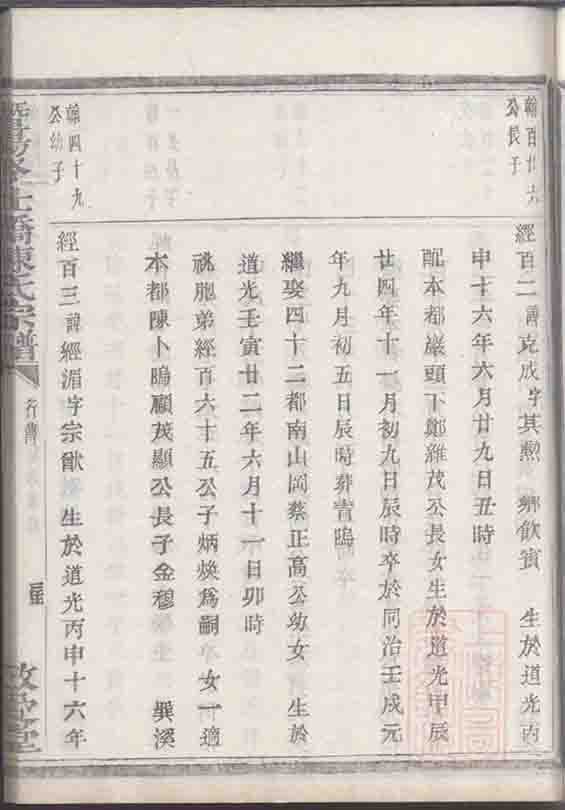 翰百廿六
公長子
經百二諱克成字其勲 鄉飲賓 生於道光丙
申十六年六月廿九日丑時
配本都巖頭下鄭維茂公長女生於道光甲辰
廿四年十一月初九日辰時卒於同治壬戌元
年九月初五日辰時葬青塢
繼娶四十二都南山岡蔡正高公幼女 生於
道光壬寅廿二年六月十一日卯時
祧胞弟經百六十五公子炳煥爲嗣 女一適
本都陳卜鳴顧茂顯公長子金穆 巽溪
翰四十九
公幼子
經百三諱經湄字宗猷 生於道光丙申十六年
橋陳氏宗譜
行傳